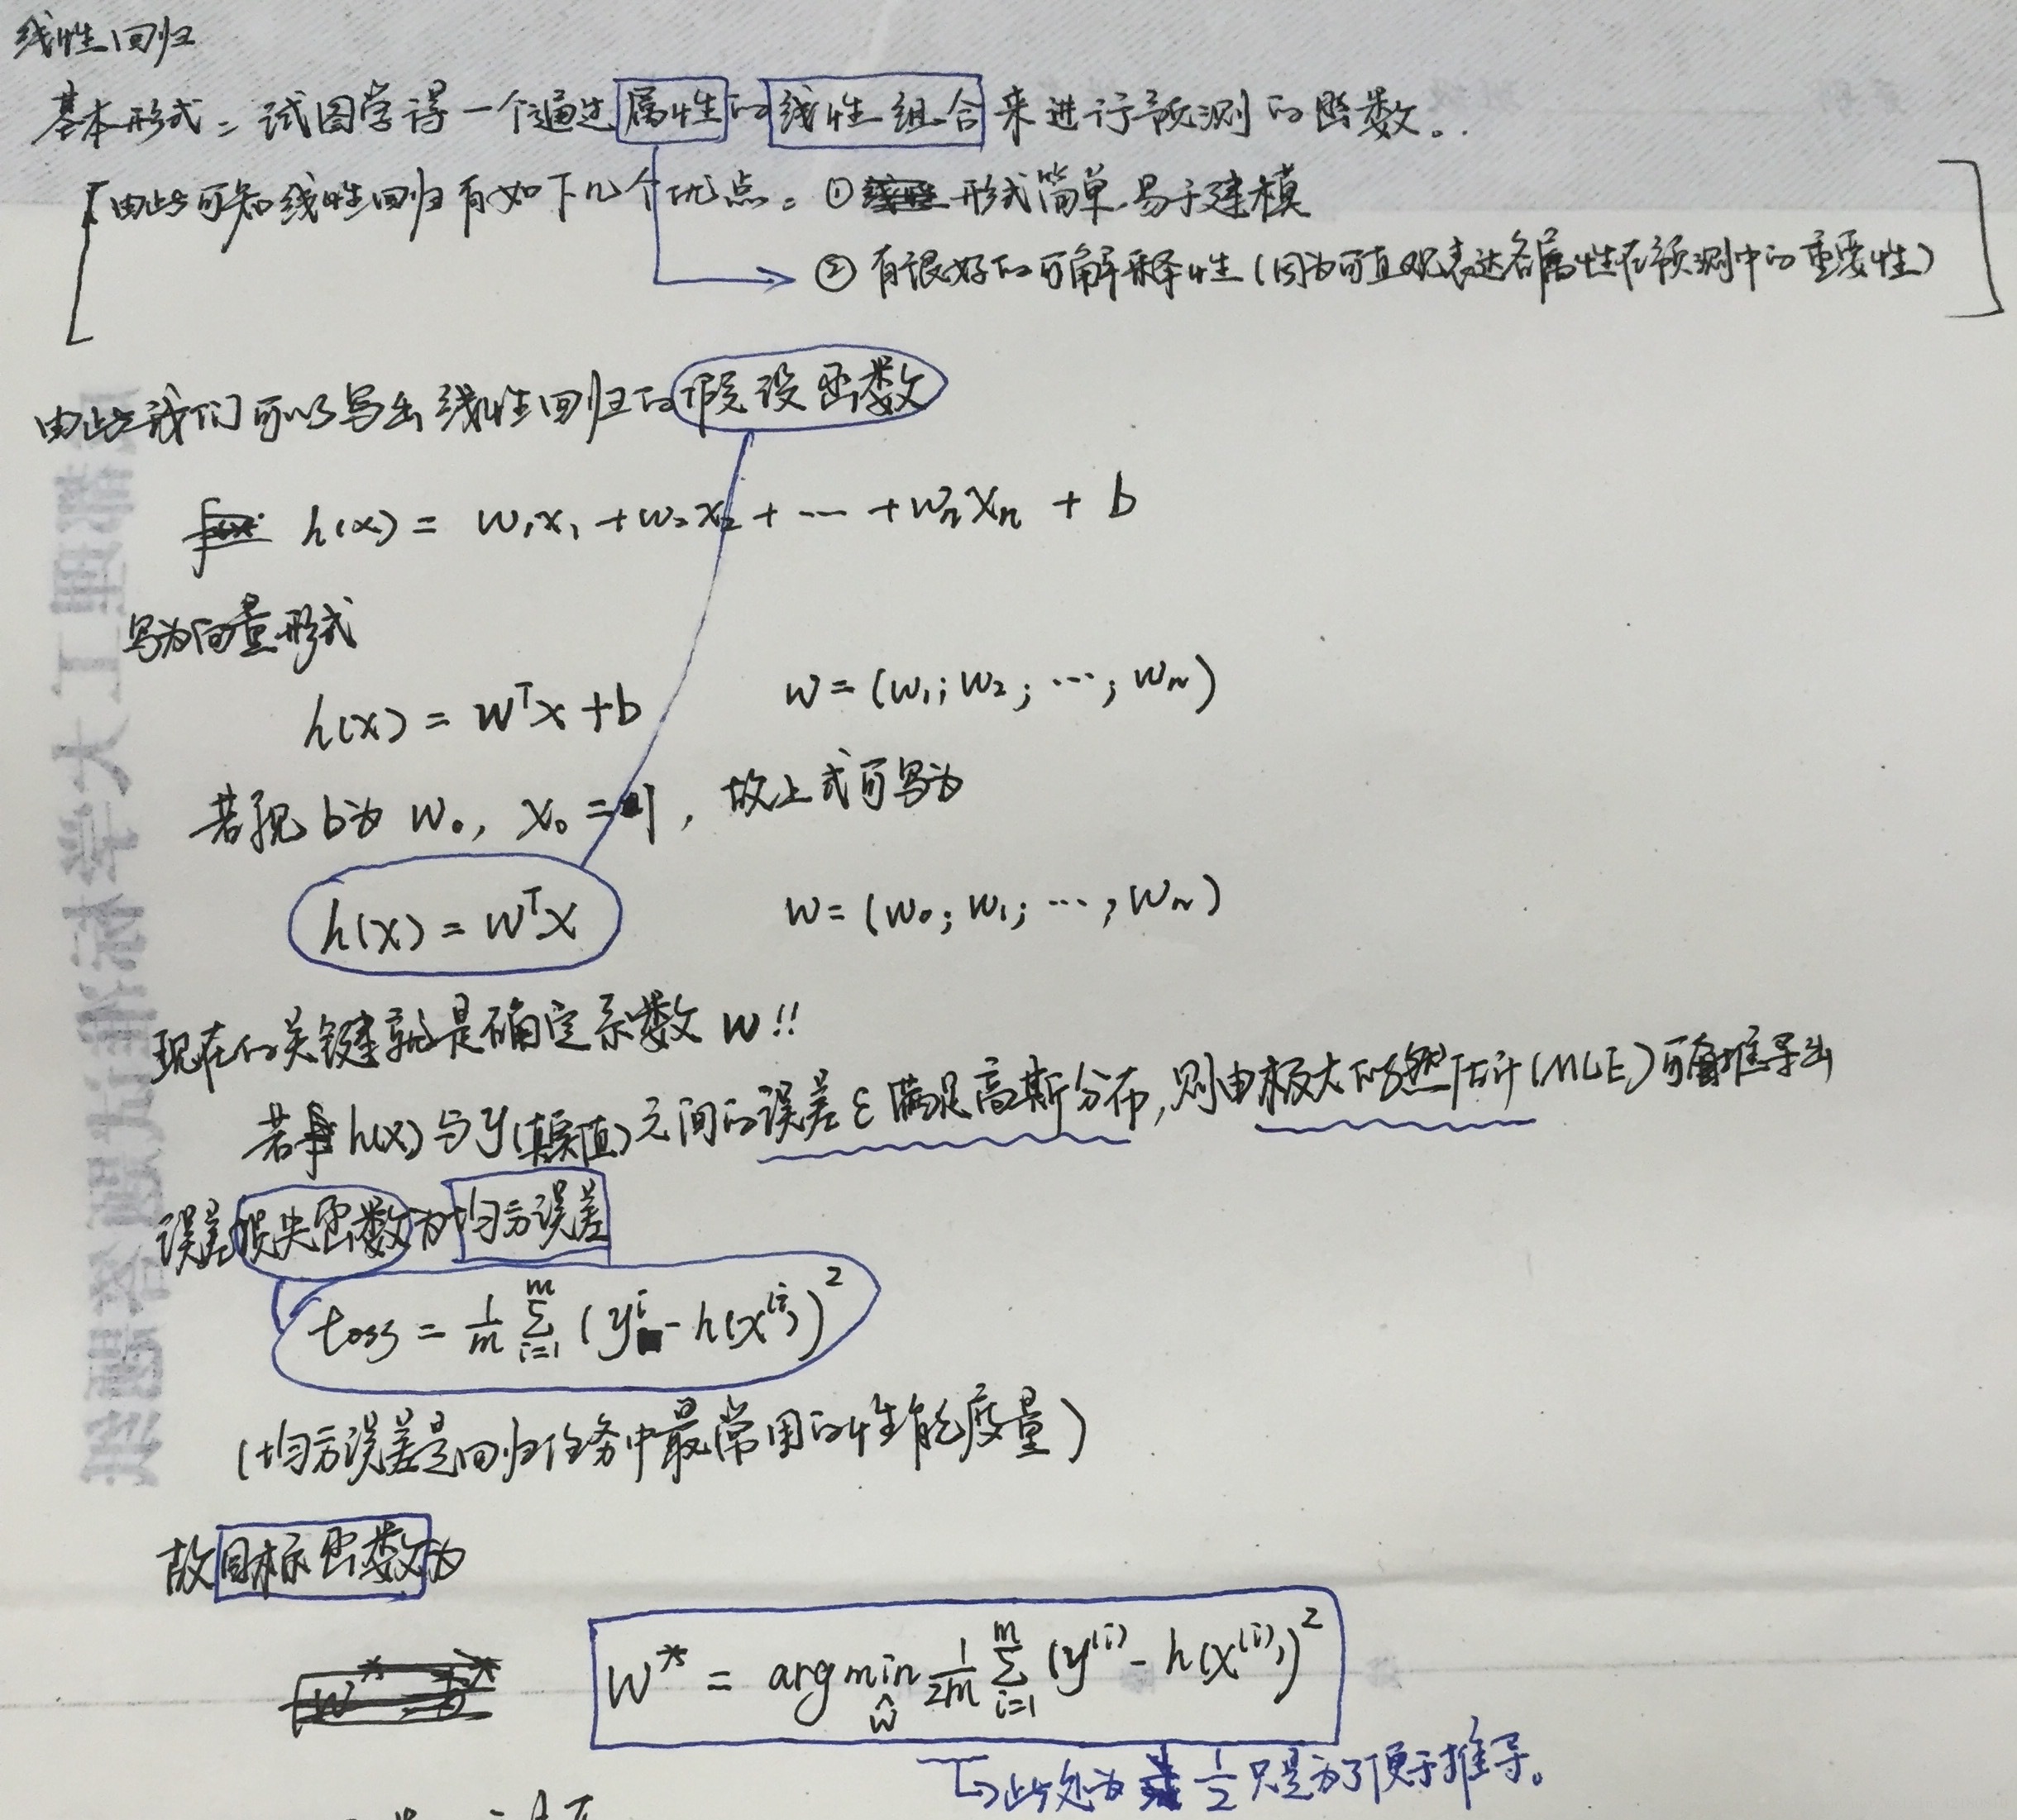 线性回归
基本形式：试图学得一个通过属性的线性组合来进行预测的函数。
由此可知线性回归有如下几个优点。① 形式简单易于建模
② 有很好的可解释性(因为可直观表达各属性在预测中的重要性)
由此我们可以写出线性回归的假设函数
h(x) = w₁x₁ + w₂x₂ + … + wₙxₙ + b
写为向量形式
h(x) = wᵀx + b    w = (w₁; w₂; …; wₙ)
若视b为 w₀, x₀ = 1, 故上式可写为
h(x) = wᵀx    w = (w₀; w₁; …; wₙ)
现在的关键就是确定系数 w!!
若 h(x) 与 y(真实值)之间的误差 ε 满足高斯分布,则由极大似然估计(MLE)可推导出
误差损失函数为均方误差
loss = 1/m Σᵢ₌₁ᵐ (yⁱ - h(x⁽ⁱ⁾))²
(均方误差是回归任务中最常用的性能度量)
故目标函数为
w* = arg min_ŵ 1/2m Σᵢ₌₁ᵐ (y⁽ⁱ⁾ - h(x⁽ⁱ⁾))²
↳此处为 1/2 只是为了便于推导。